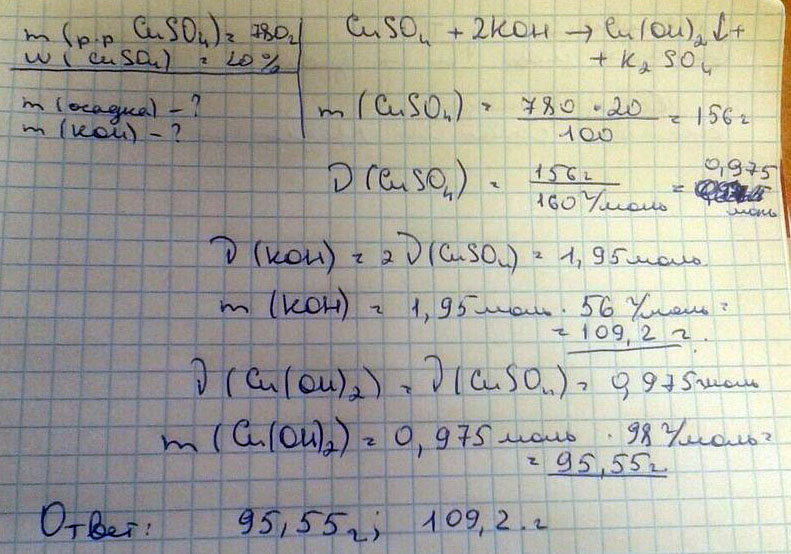 m (р.р CuSO₄) = 780г
w (CuSO₄) = 20%
m (осадка) - ?
m (KOH) - ?
CuSO₄ + 2KOH → Cu(OH)₂↓ +
+ K₂SO₄
m (CuSO₄) = 780 · 20 / 100 = 156 г
ν (CuSO₄) = 156 г / 160 г/моль = 0,975 моль
ν (KOH) = 2 ν (CuSO₄) = 1,95 моль
m (KOH) = 1,95 моль · 56 г/моль =
= 109,2 г.
ν (Cu(OH)₂) = ν (CuSO₄) = 0,975 моль
m (Cu(OH)₂) = 0,975 моль · 98 г/моль =
= 95,55 г
Ответ: 95,55 г; 109,2 г